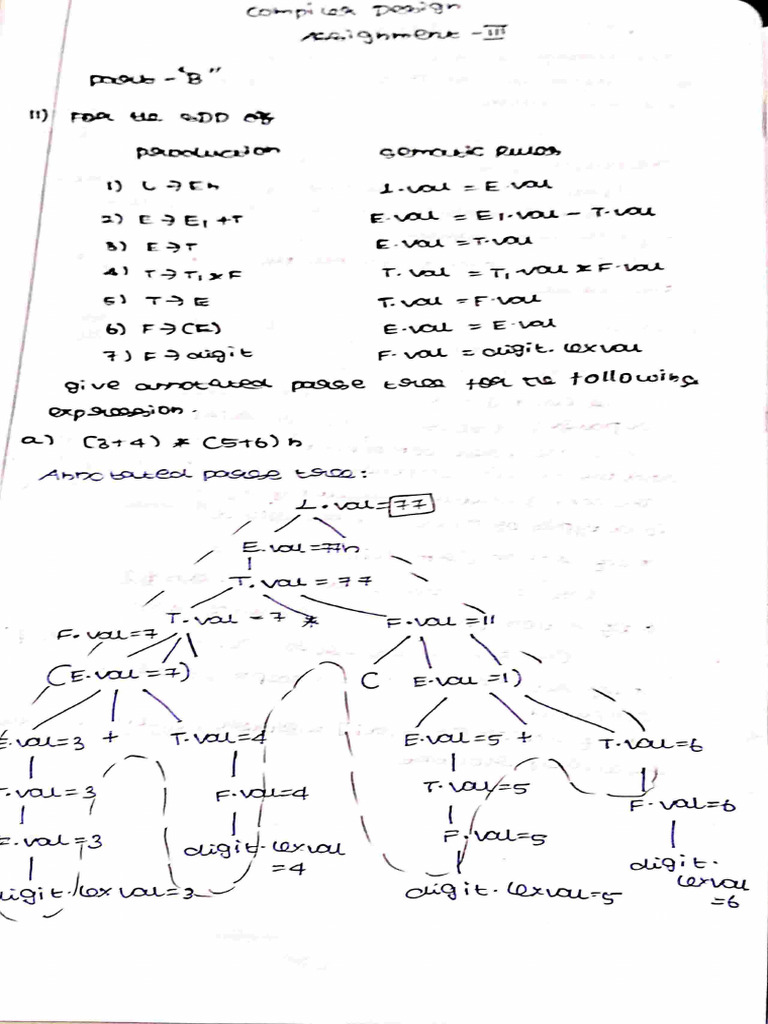 Compiler Design
Assignment - III
part - "B"
11) For the SDD of
production semantic Rules
1) L → En L.val = E.val
2) E → E₁ + T E.val = E₁.val - T.val
3) E → T E.val = T.val
4) T → T₁ * F T.val = T₁.val * F.val
5) T → E T.val = F.val
6) F → (E) E.val = E.val
7) F → digit F.val = digit.lexval
give annotated parse tree for the following
expression.
a) (3+4) * (5+6) n
Annotated parse tree:
L.val = 77
E.val = 77n
T.val = 77
T.val - 7 * F.val = 11
F.val = 7
(E.val = 7) ( E.val = 1)
E.val = 3 + T.val = 4 E.val = 5 + T.val = 6
T.val = 3 F.val = 4 T.val = 5 F.val = 6
F.val = 3 digit.lexval = 4 F.val = 5 digit.lexval = 6
digit.lexval = 3 digit.lexval = 5